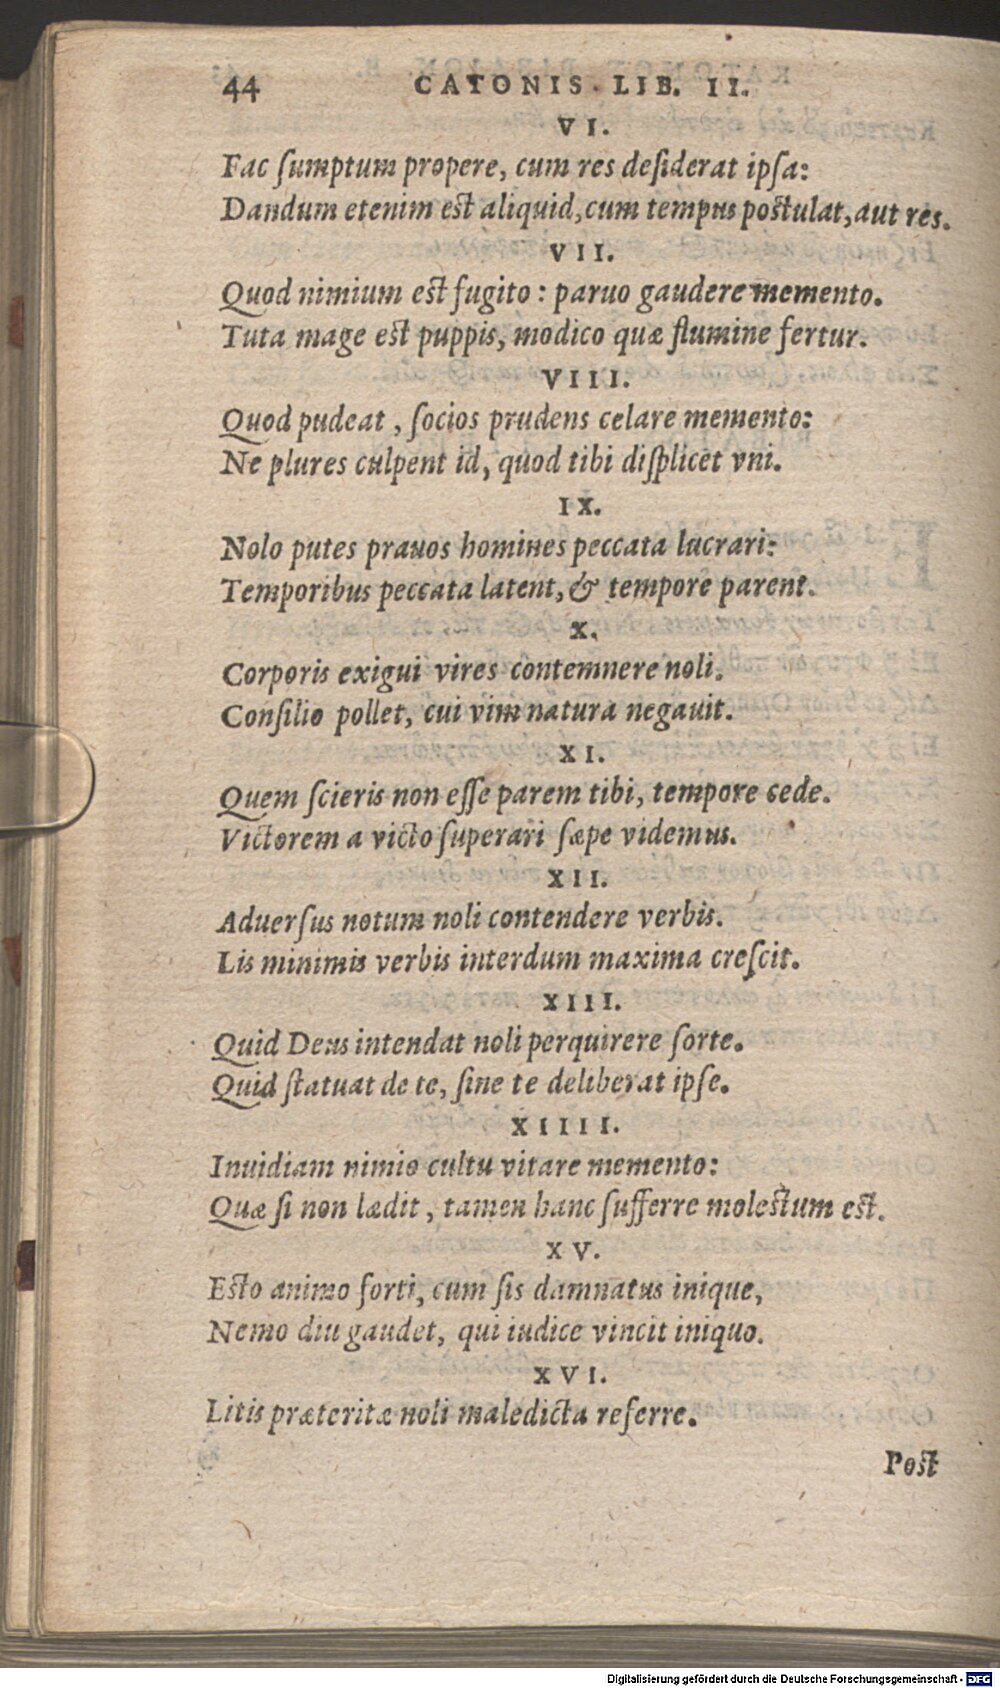 44 CATONIS. LIB. II.
VI.
Fac ſumptum propere, cum res deſiderat ipſa:
Dandum etenim est aliquid, cum tempus postulat, aut res.
VII.
Quod nimium est fugito: paruo gaudere memento.
Tuta mage est puppis, modico quæ flumine fertur.
VIII.
Quod pudeat, ſocios prudens celare memento:
Ne plures culpent id, quod tibi diſplicet vni.
IX.
Nolo putes prauos homines peccata lucrari:
Temporibus peccata latent, & tempore parent.
X.
Corporis exigui vires contemnere noli.
Conſilio pollet, cui vim natura negauit.
XI.
Quem ſcieris non eſſe parem tibi, tempore cede.
Victorem a victo ſuperari ſæpe videmus.
XII.
Aduerſus notum noli contendere verbis.
Lis minimis verbis interdum maxima creſcit.
XIII.
Quid Deus intendat noli perquirere ſorte.
Quid ſtatuat de te, ſine te deliberat ipſe.
XIIII.
Inuidiam nimio cultu vitare memento:
Quæ ſi non lædit, tamen hanc ſufferre molestum est.
XV.
Esto animo forti, cum ſis damnatus inique,
Nemo diu gaudet, qui iudice vincit iniquo.
XVI.
Litis præteritæ noli maledicta referre.
Post
Digitalisierung gefördert durch die Deutsche Forschungsgemeinschaft - DFG